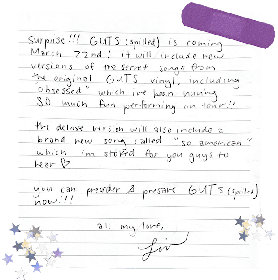 Surprise!!! GUTS (spilled) is coming
March 22nd! it will include new
versions of the secret songs from
the original GUTS vinyl, including
"obsessed" which i've been having
SO much fun performing on tour!!
the deluxe version will also include a
brand new song called "so american"
which i'm stoked for you guys to
hear
you can preorder & presave GUTS (spilled)
now!!!
all my love,
Liv